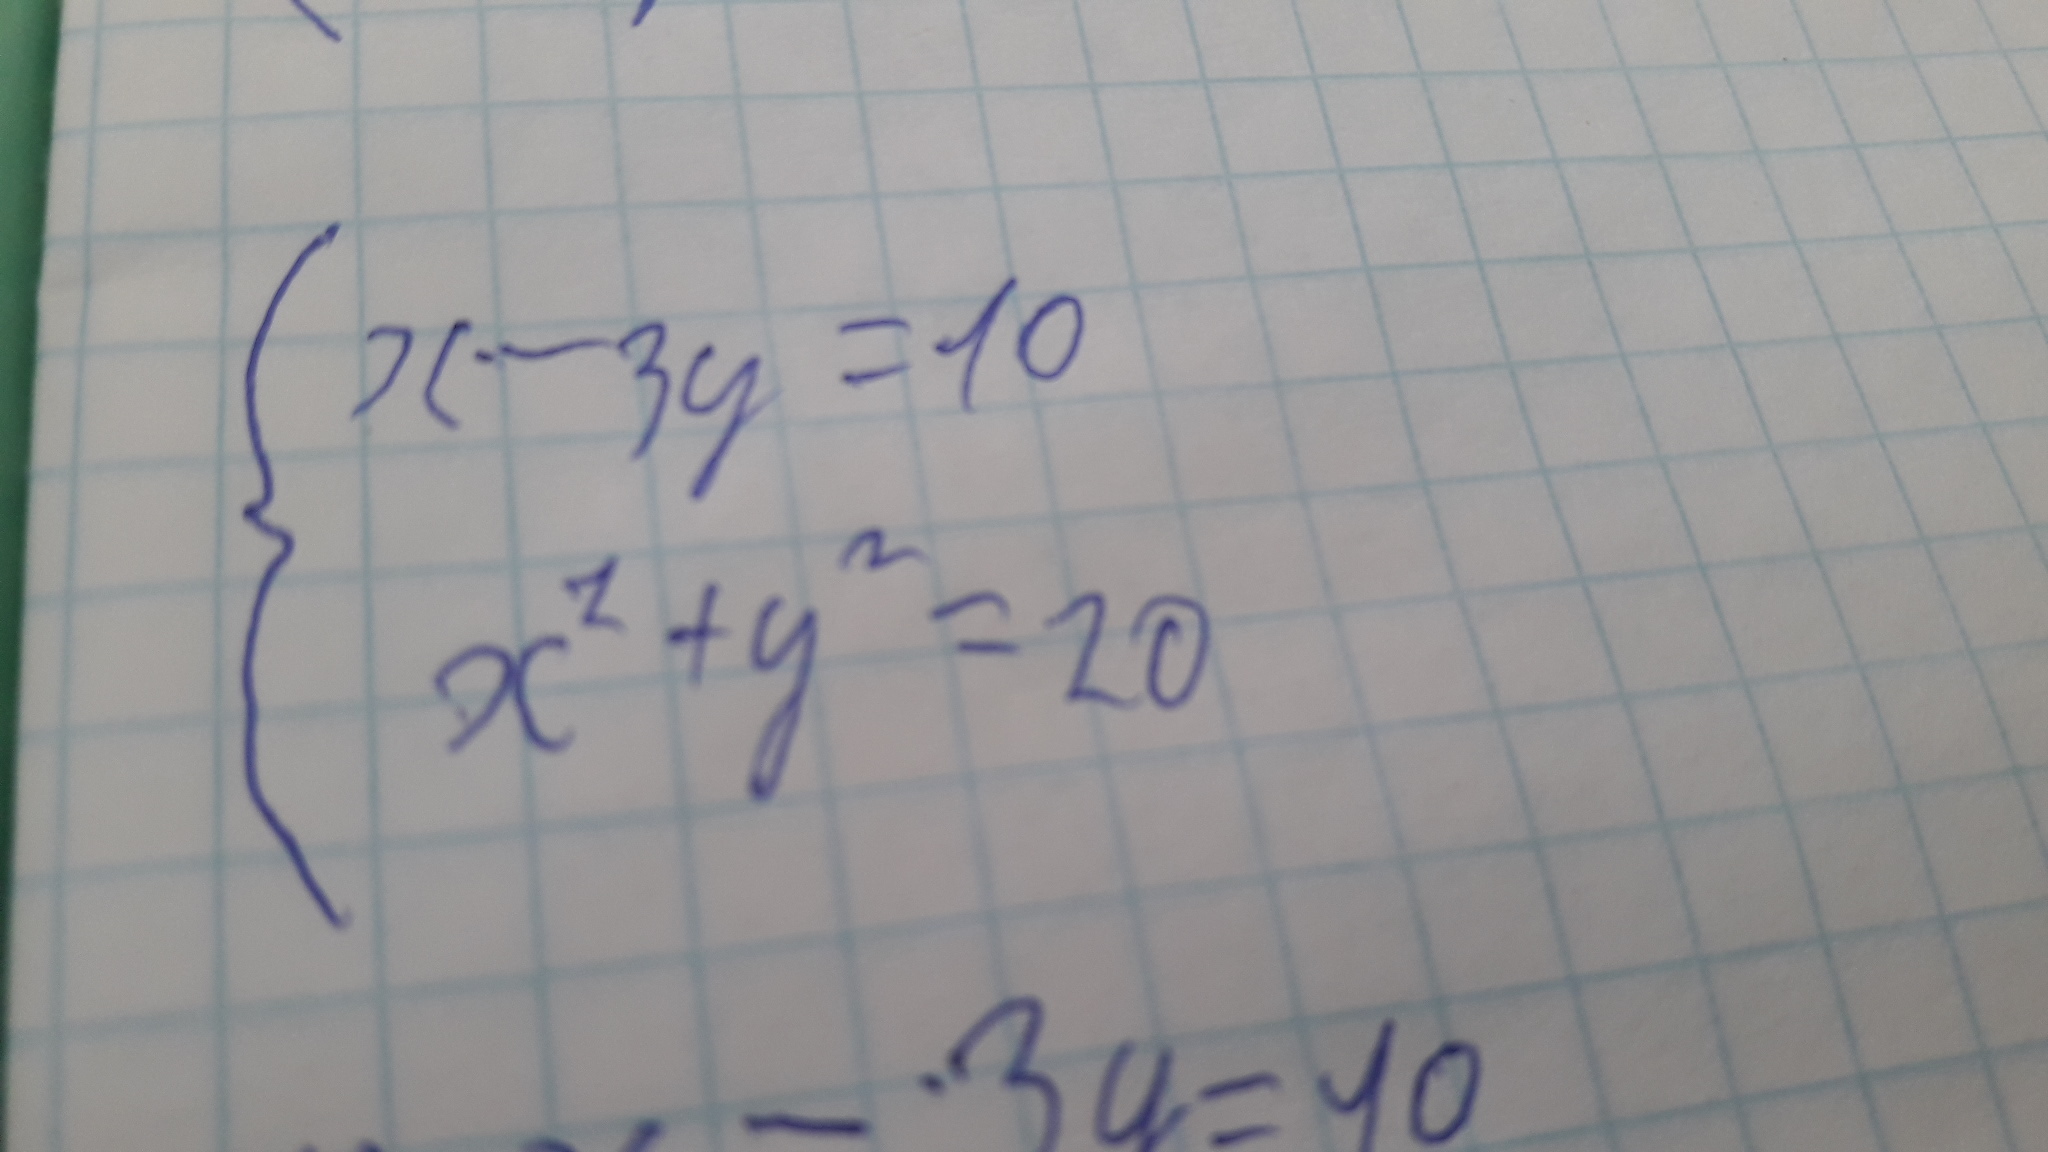 x - 3y = 10
x² + y² = 20
- 3y = 10